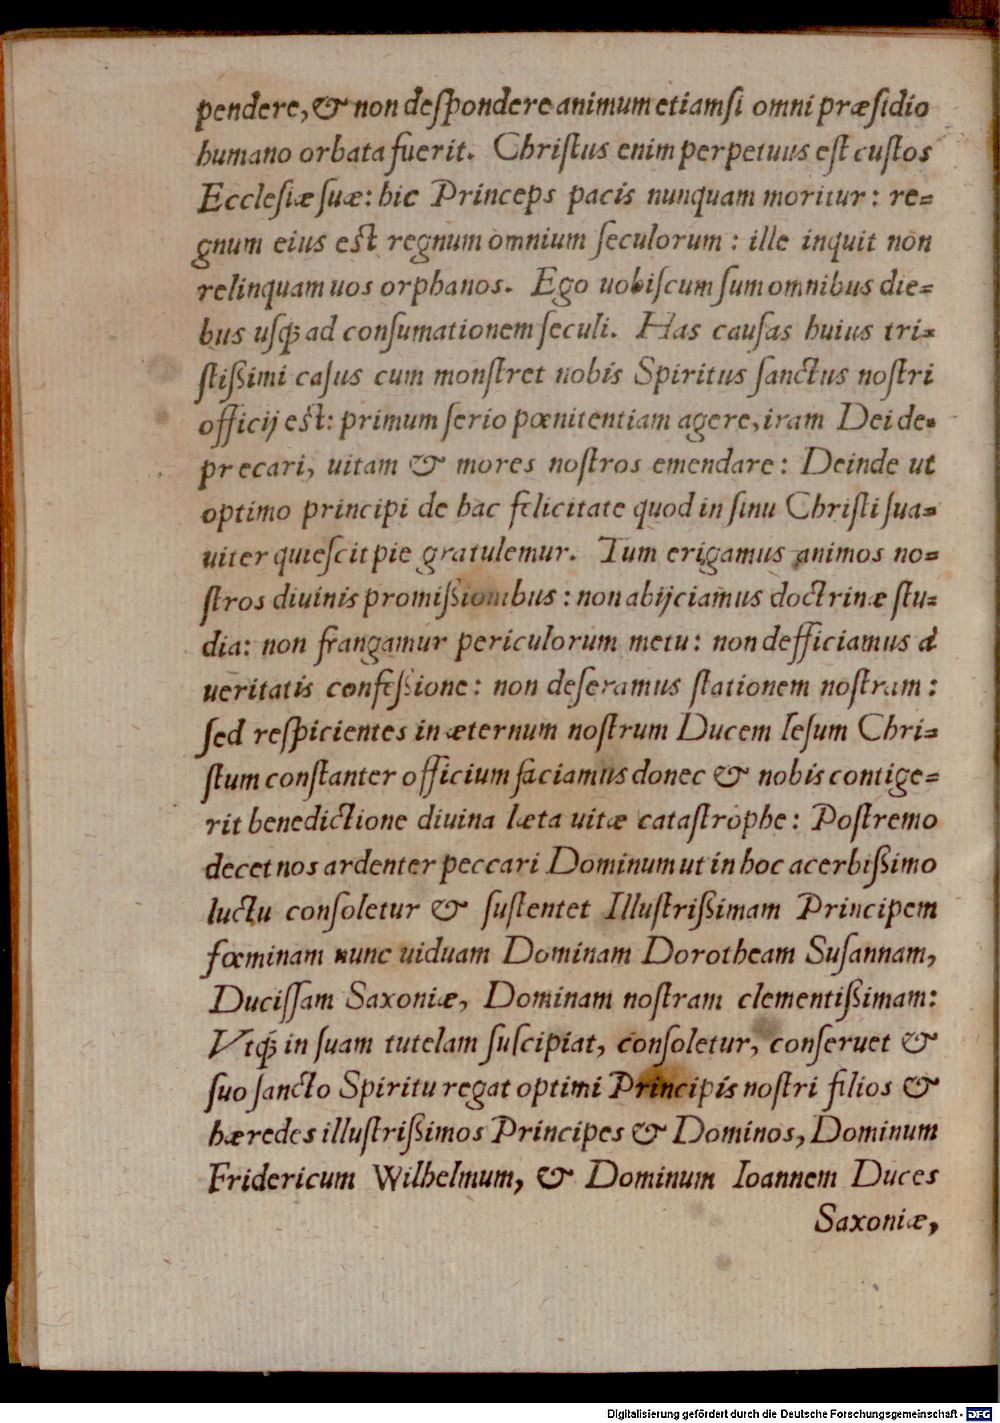 pendere, & non deſpondere animum etiamſi omni præſidio
humano orbata fuerit. Chriſtus enim perpetuus eſt cuſtos
Eccleſiæ ſuæ: hic Princeps pacis nunquam moritur: re=
gnum eius eſt regnum omnium ſeculorum: ille inquit non
relinquam uos orphanos. Ego uobiſcum ſum omnibus die=
bus uſꝙ ad conſumationem ſeculi. Has cauſas huius tri=
ſtißimi caſus cum monſtret nobis Spiritus ſanctus noſtri
officij eſt: primum ſerio pœnitentiam agere, iram Dei de=
precari, uitam & mores noſtros emendare: Deinde ut
optimo principi de hac felicitate quod in ſinu Chriſti ſua=
uiter quieſcit pie gratulemur. Tum erigamus animos no=
ſtros diuinis promißionibus: non abijciamus doctrinæ ſtu=
dia: non frangamur periculorum metu: non defficiamus à
ueritatis confeßione: non deſeramus ſtationem noſtram:
ſed reſpicientes in æternum noſtrum Ducem Ieſum Chri=
ſtum conſtanter officium faciamus donec & nobis contige=
rit benedictione diuina læta uitæ cataſtrophe: Poſtremo
decet nos ardenter peccari Dominum ut in hoc acerbißimo
luctu conſoletur & ſuſtentet Illuſtrißimam Principem
fœminam nunc uiduam Dominam Dorotheam Suſannam,
Duciſſam Saxoniæ, Dominam noſtram clementißimam:
Vtꝙ in ſuam tutelam ſuſcipiat, conſoletur, conſeruet &
ſuo ſancto Spiritu regat optimi Principis noſtri filios &
hæredes illuſtrißimos Principes & Dominos, Dominum
Fridericum Wilhelmum, & Dominum Ioannem Duces
Saxoniæ,
Digitalisierung gefördert durch die Deutsche Forschungsgemeinschaft - DFG